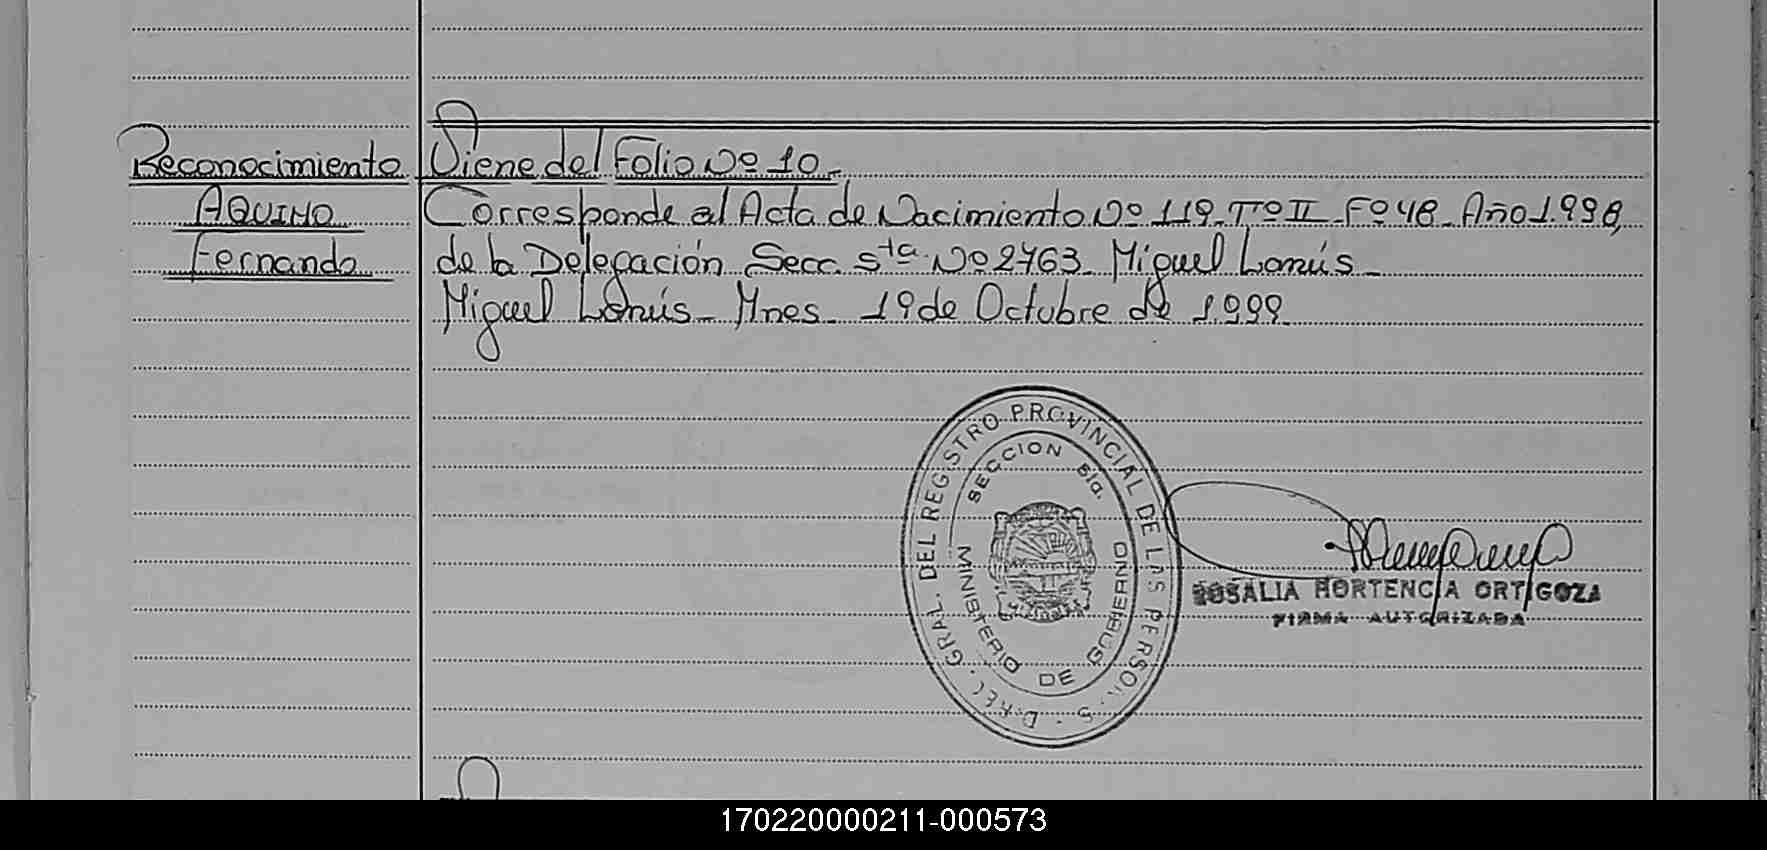 Reconocimiento
AQUINO
Fernando
Viene del Folio Nº 10.-
Corresponde al Acta de Nacimiento Nº 119- Tº II- Fº 48- Año 1.998,
de la Delegación Secc. 5ta. Nº 2763- Miguel Lanús-
Miguel Lanús- Mnes- 19 de Octubre de 1.999
DEL REGISTRO PROVINCIAL DE LAS PERSON.
GRAL.
SECCION 5ta.
MINISTERIO DE GOBIERNO
ROSALIA HORTENCIA ORTIGOZA
FIRMA AUTORIZADA
170220000211-000573